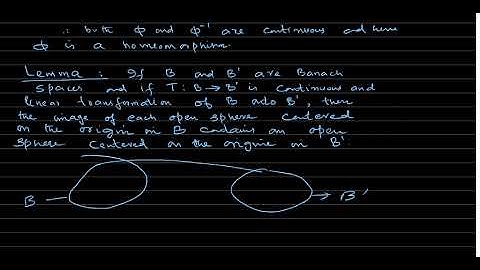 ∴ both φ and φ⁻¹ are continuous and hence
φ is a homeomorphism.
Lemma : If B and B' are Banach
spaces and if T : B → B' is continuous and
linear transformation of B onto B', then
the image of each open sphere centered
on the origin in B contains an open
sphere centered on the origin in B'.
B
B'